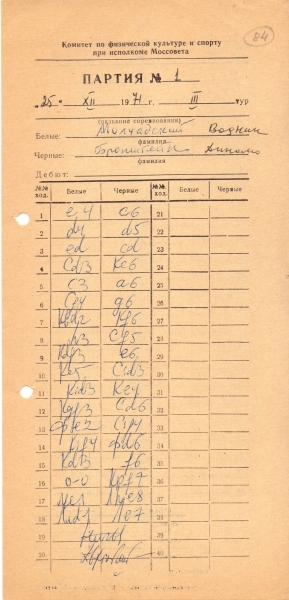 84
Комитет по физической культуре и спорту
при исполкоме Моссовета
ПАРТИЯ № 1
"25" XII 1971 г. III тур
(название соревнования)
Белые: Молчадский Водник
фамилия
Черные: Бронштейн Динамо
фамилия
Дебют:
№№ ход. Белые Черные №№ ход. Белые Черные
1 e4 c6 21
2 d4 d5 22
3 ed cd 23
4 Cd3 Kc6 24
5 c3 a6 25
6 g6 26
7 Kf6 27
8 h3 Cf5 28
9 Kf3 e6 29
10 Ke5 C:d3 30
11 K:d3 Ke4 31
12 Cd6 32
13 Фe2 33
14 Ф:d6 34
15 Kd3 f6 35
16 0-0 Kpf7 36
17 Лe1 Лhe8 37
18 Лe7 38
19 39
20 40